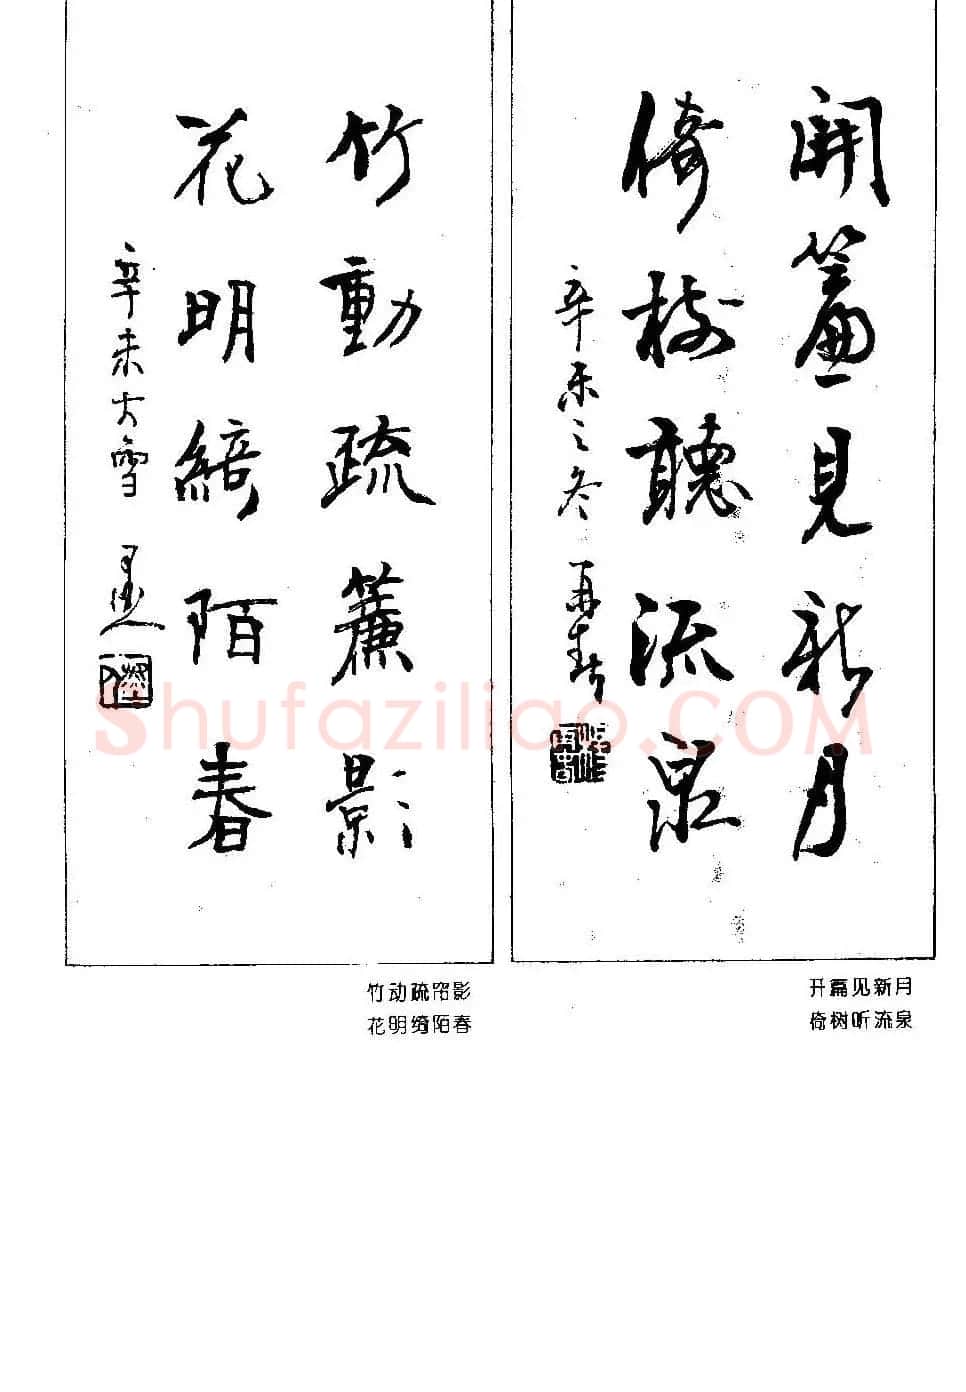 開簾見新月
倚樹聽流泉
辛未之冬
竹動疏簾影
花明綺陌春
辛未大雪
开篇见新月
倚树听流泉
竹动疏帘影
花明绮陌春
Shufaziliao.COM